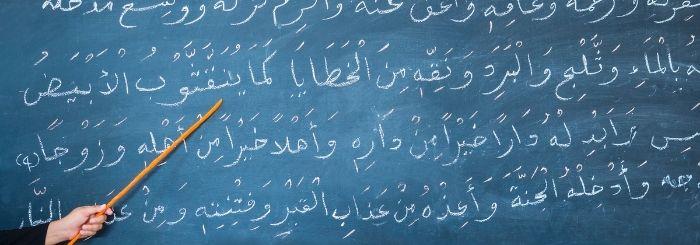 وَرَحْمَهُ وَعَافِهِ وَاعْفُ عَنْهُ وَأَكْرِمْ نُزُلَهُ وَوَسِّعْ مُدْخَلَهُ
بِالْمَاءِ وَثَّلْجِ وَالْبَرَدِ وَنَقِّهِ مِنَ الْخَطَايَا كَمَا يُنَقَّثَّوْبُ الْأَبْيَضُ
لَهُ دَارًا خَيْرًا مِنْ دَارِهِ وَأَهْلًا خَيْرًا مِنْ أَهْلِهِ وَزَوْجًا
وَأَدْخِلْهُ الْجَنَّةَ وَأَعِذْهُ مِنْ عَذَابِ الْقَبْرِ وَفِتْنَتِهِ وَمِنْ عَذَابِ النَّارِ